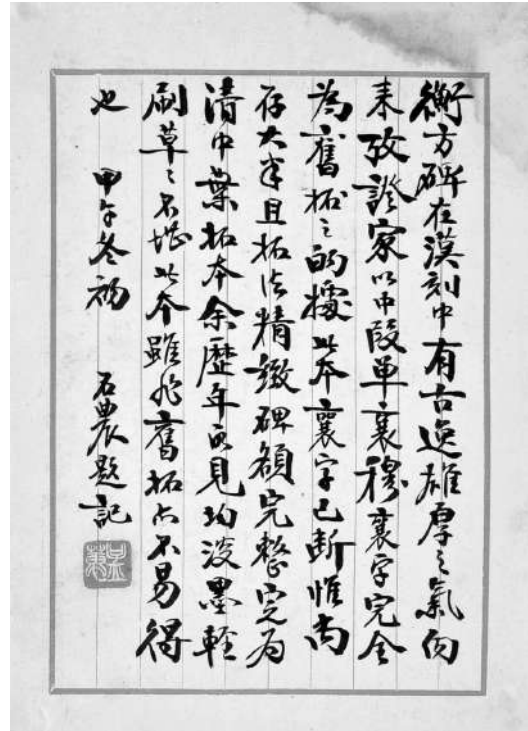 衡方碑在漢刻中有古逸雄厚之氣向
來攷證家以中段單襄穆襄字完全
為舊拓之的據此本襄字已斷惟尚
存大半且拓法精緻碑額完整定為
清中葉拓本余歷年所見均淡墨輕
刷草〻不堪此本雖非舊拓亦不易得
也 甲午冬初 石農題記